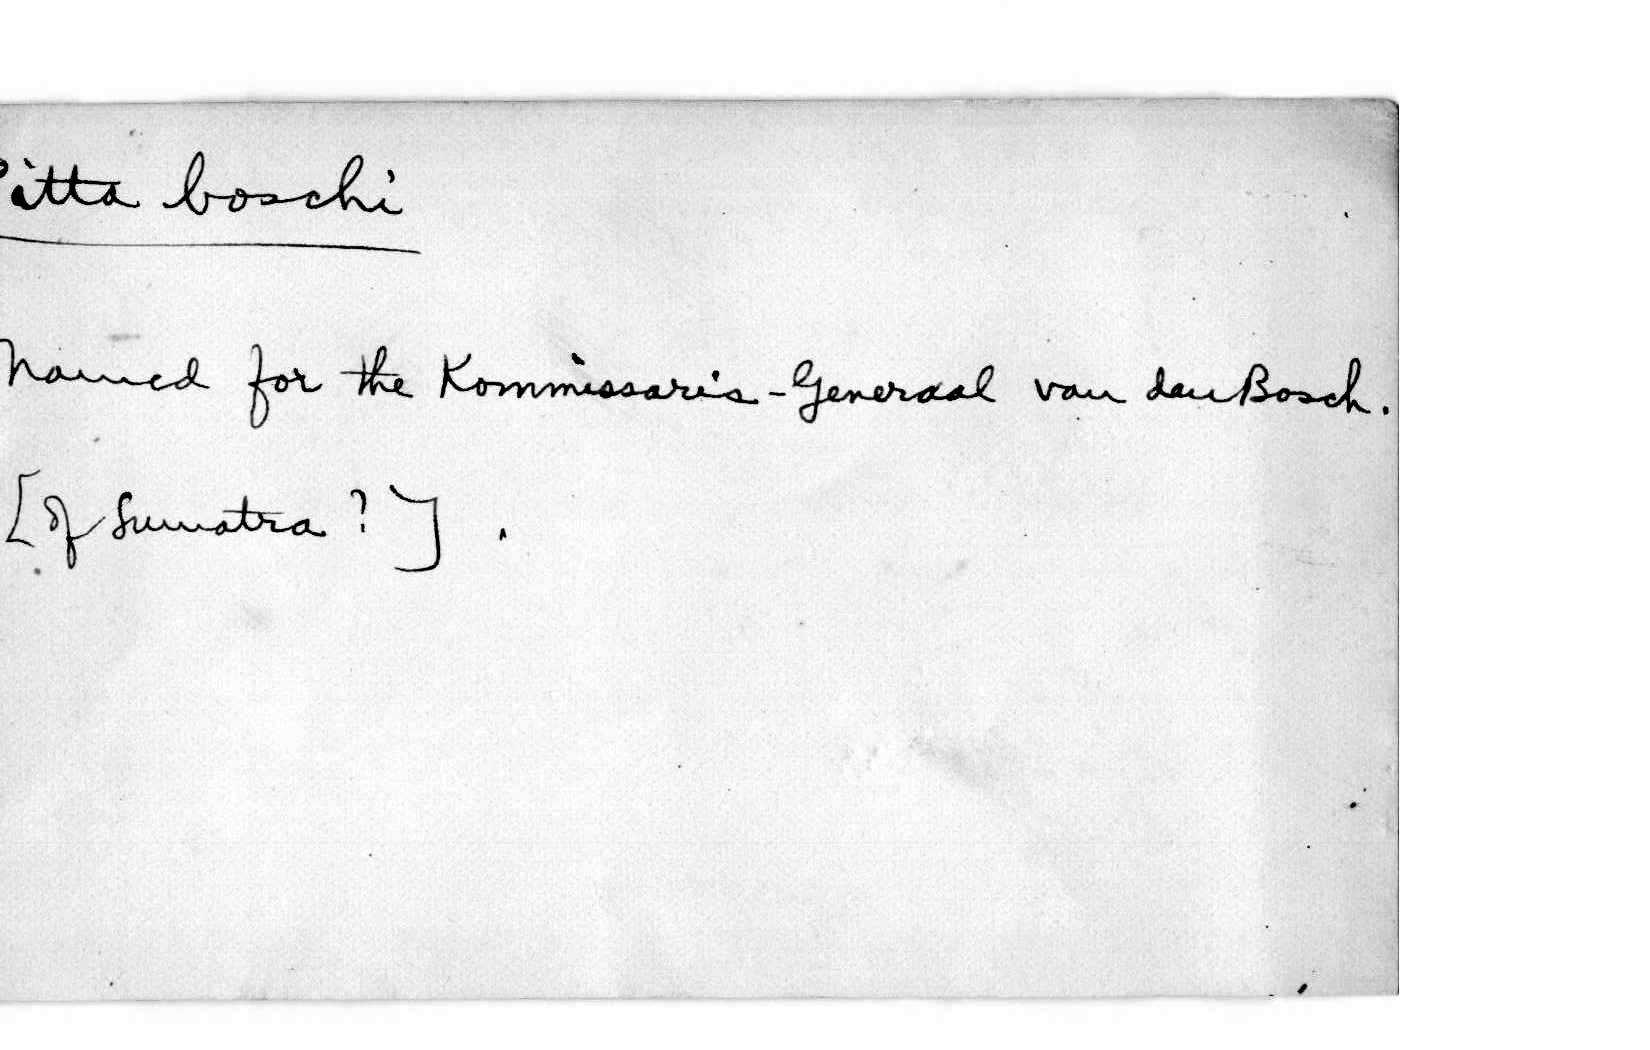 Pitta boschi
Named for the Kommissaris-Generaal van den Bosch.
[of Sumatra?].